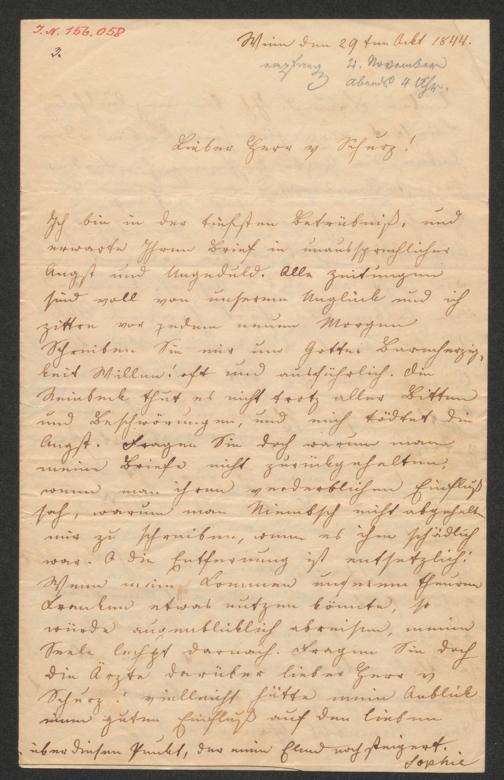 I.N. 156.058
2.
Wien den 29ten Okt 1844.
empfang 2. November
abends 4 Uhr.
Lieber Herr v Schurz!
Ich bin in der tiefsten Betrübniß, und
erwarte Ihren Brief in unaussprechlicher
Angst und Ungeduld. Alle Zeitungen
sind voll von unserem Unglück und ich
zittre vor jedem neuen Morgen
Schreiben Sie mir um Gottes Barmherzig,
keit Willen! oft und ausführlich. Die
Reinbeck thut es nicht trotz aller Bitten
und Beschwörungen, und mich tödtet die
Angst. Fragen Sie doch warum man
meine Briefe nicht zurückgehalten,
wenn man ihren verderblichen Einfluß
sah, warum man Niembsch nicht abgehalten
mir zu schreiben, wenn es ihm schädlich
war. O die Entfernung ist entsetzlich!
Wenn mein Kommen unserem theuren
Kranken etwas nutzen könnte, so
würde augenblicklich abreisen, meine
Seele lechzt darnach. Fragen Sie doch
die Ärzte darüber lieber Herr v
Schurz! vielleicht hätte mein Anblick
einen guten Einfluß auf den lieben
über diesen Punkt, der mein Elend noch steigert.
Sophie